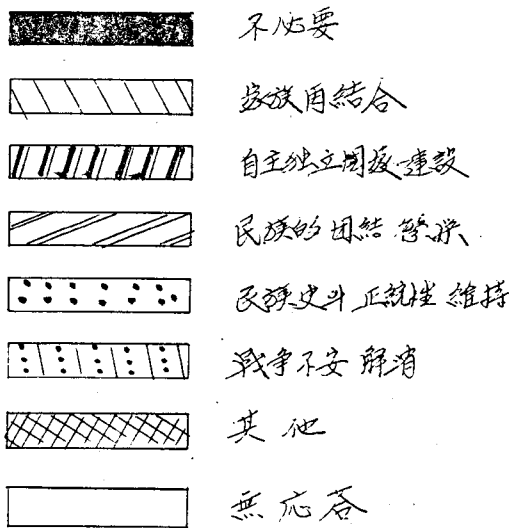 不必要
家族再結合
自主独立国家建設
民族的 団結 繁栄
民族史의 正統性 維持
戦争不安 解消
其他
無応答